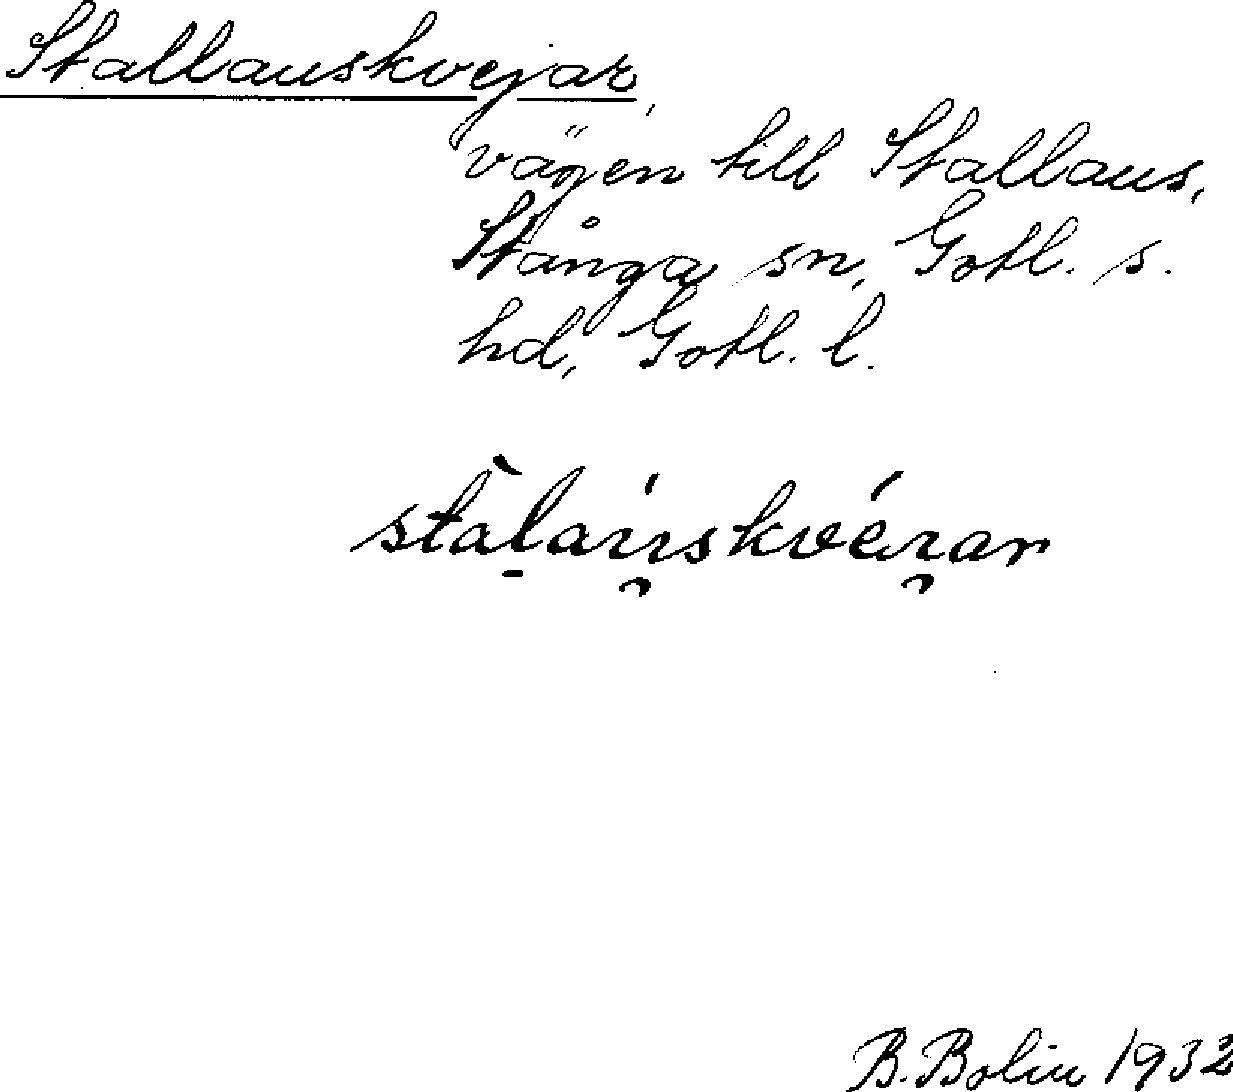 Stallauskvejar,
vägen till Stallaus,
Stånga sn, Gotl. s.
hd, Gotl. l.
B. Bolin 1932